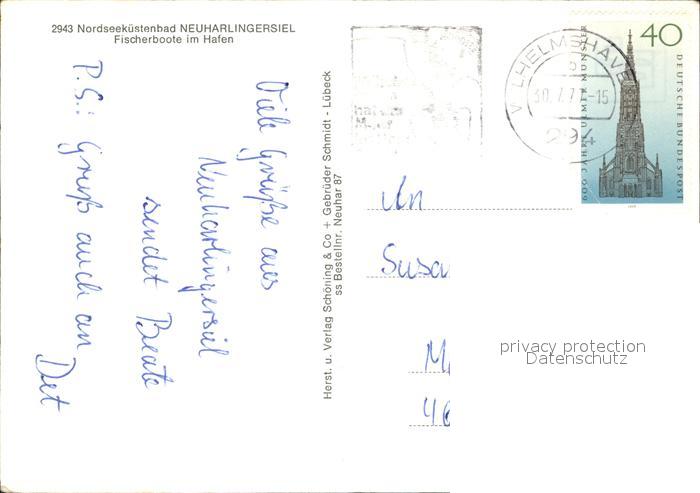 2943 Nordseeküstenbad NEUHARLINGERSIEL
Fischerboote im Hafen
Viele Grüße aus
Neuharlingersiel
sendet Beate
P.S.: Gruß auch an
Det
Herst. u. Verlag Schöning & Co + Gebrüder Schmidt - Lübeck
ss Bestellnr. Neuhar 87
WILHELMSHAVEN
b
30.7.77-15
294
40
DEUTSCHE BUNDESPOST
600 JAHRE ULMER MÜNSTER
1977
An
Susa
M
46
privacy protection
Datenschutz